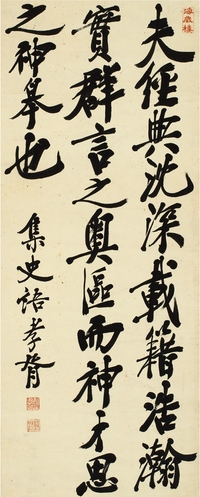 海藏樓
夫經典沈深載籍浩瀚
實群言之奧區而神才思
之神皋也
集史語孝胥